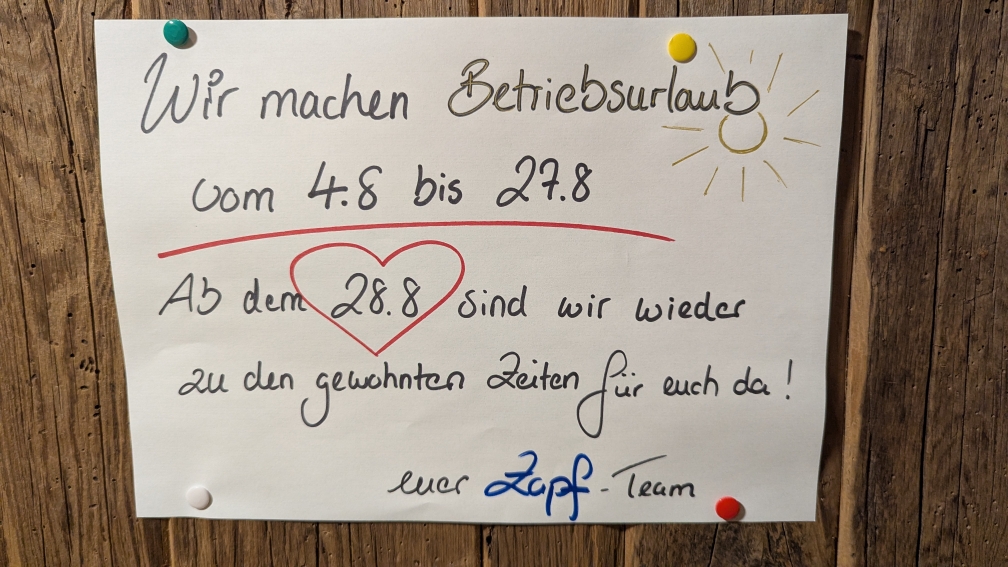 Wir machen Betriebsurlaub
vom 4.8 bis 27.8
Ab dem 28.8 sind wir wieder
zu den gewohnten Zeiten für euch da!
euer Zapf-Team